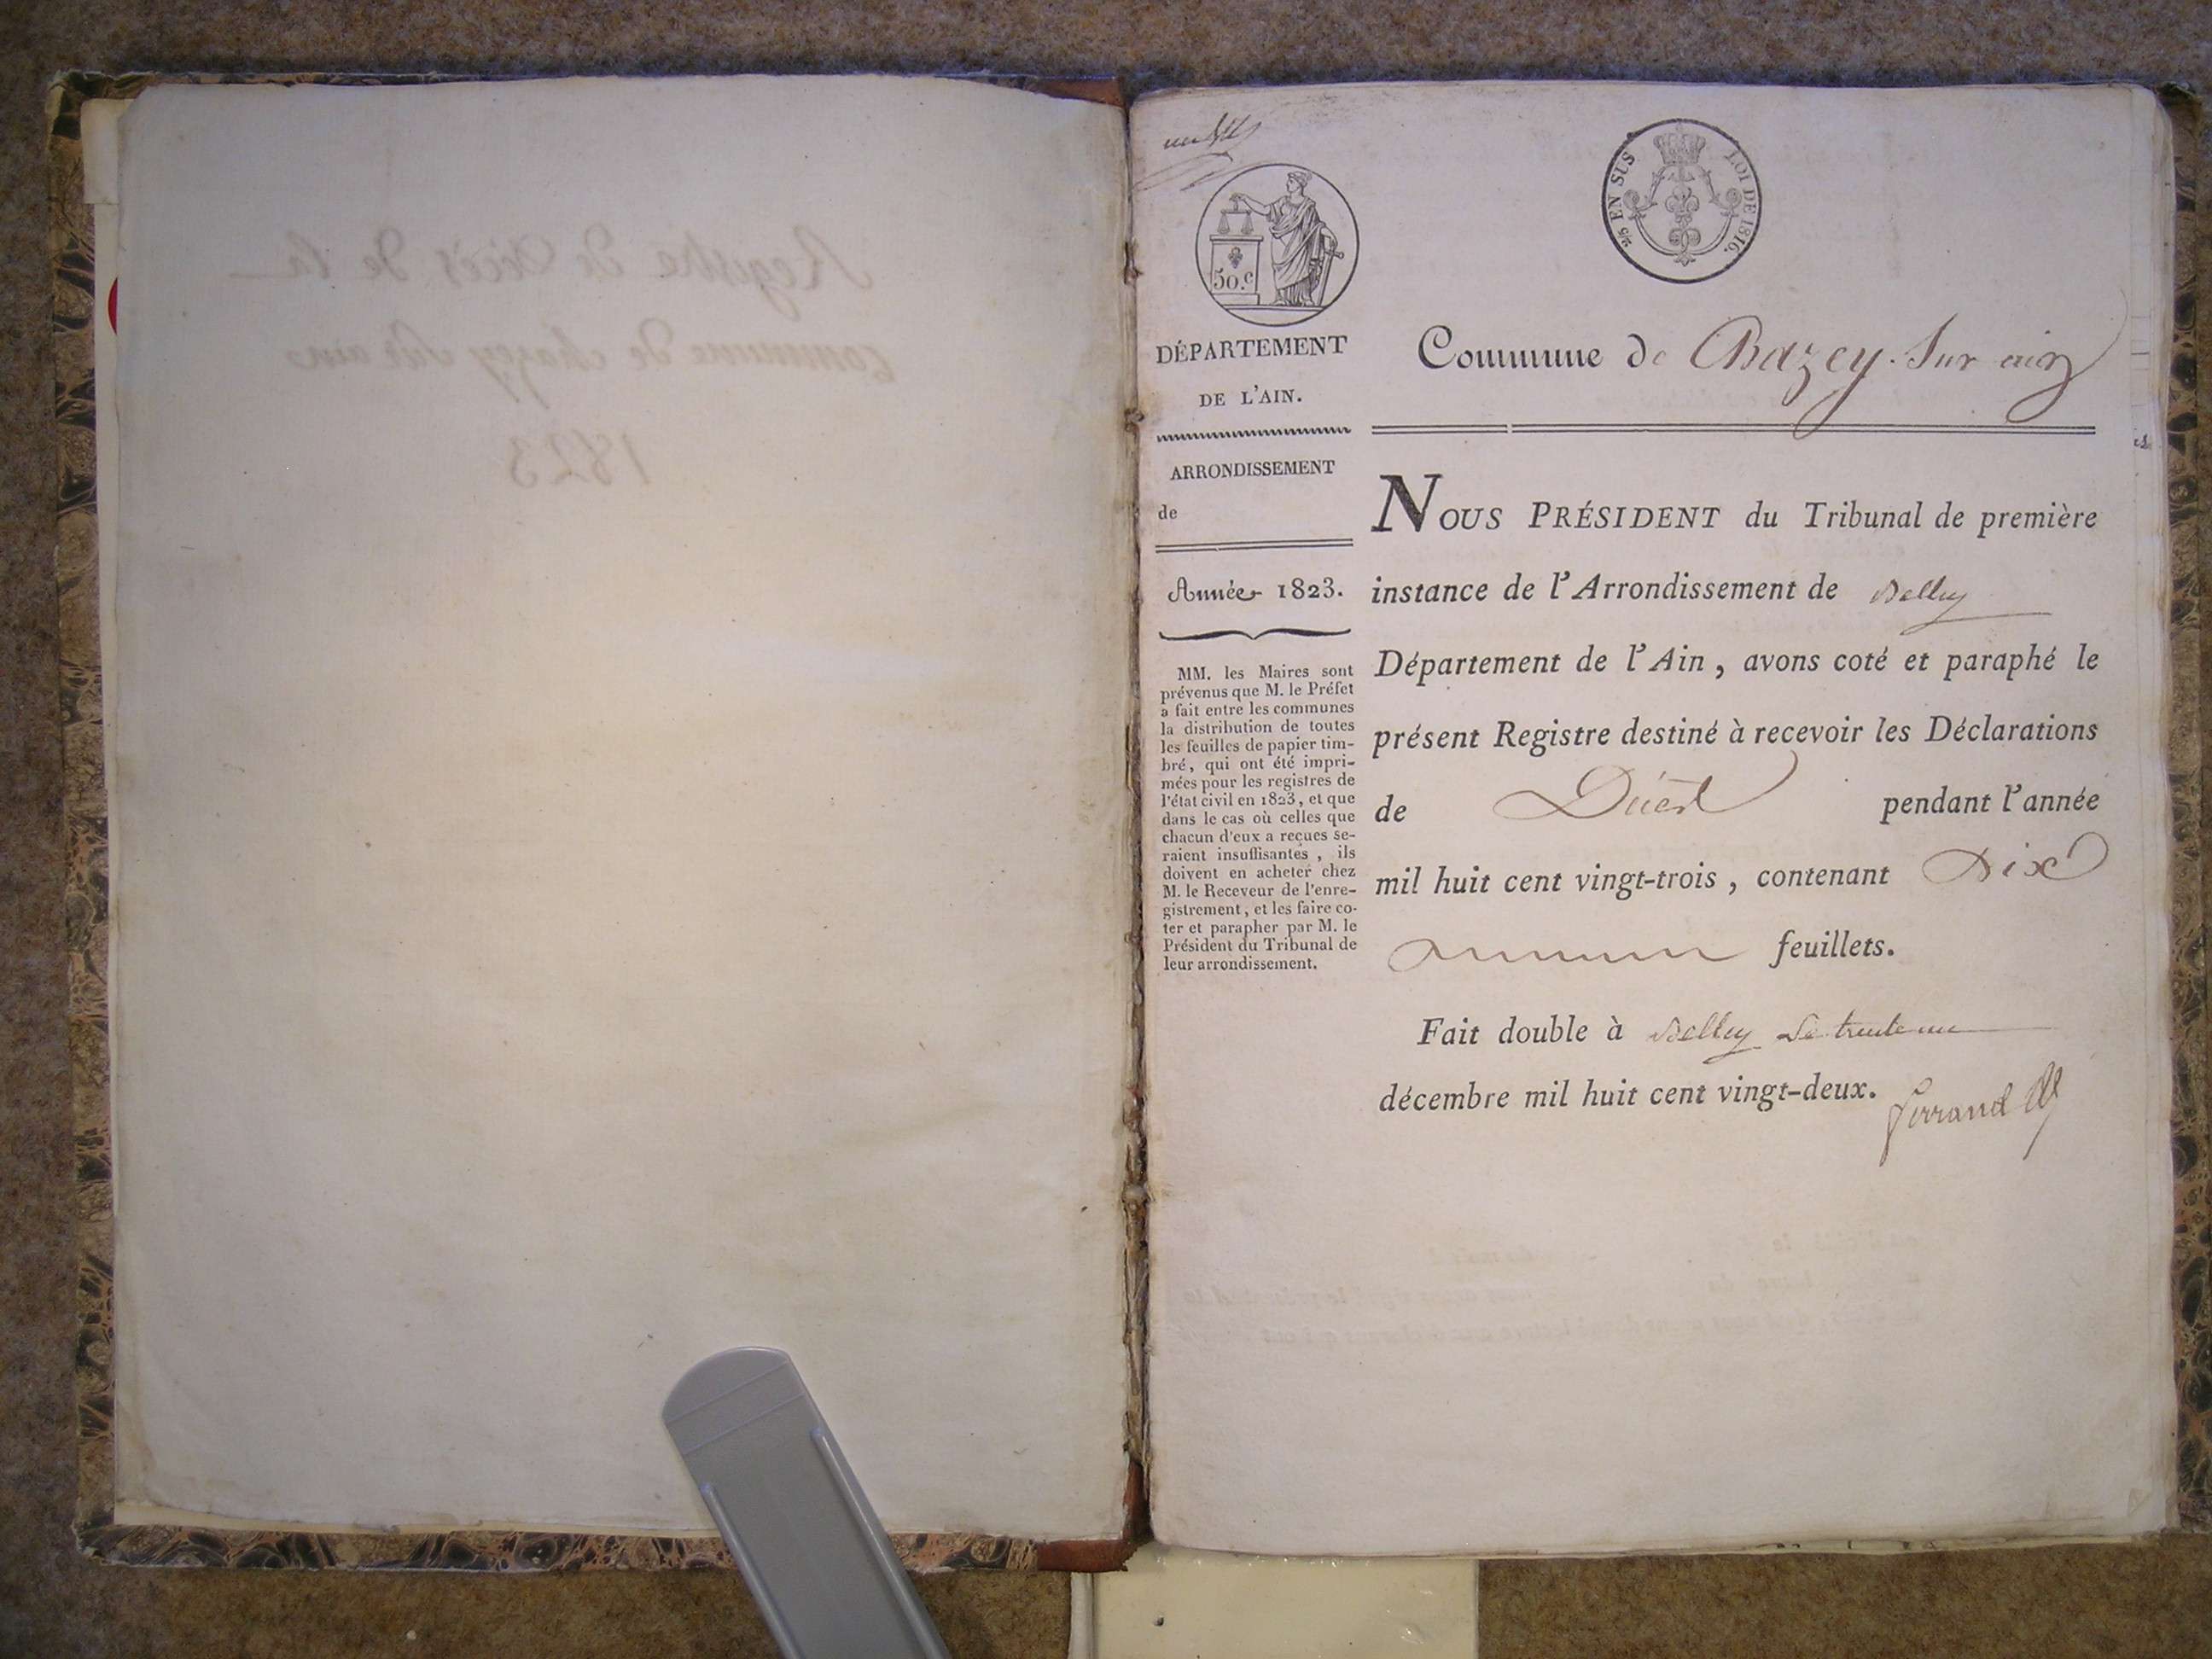 Registre de Décès de la
commune de chazey sur ain
1823
50.c
2/5 EN SUS
LOI DE 1816.
DÉPARTEMENT
DE L'AIN.
ARRONDISSEMENT
de
Année 1823.
MM. les Maires sont
prévenus que M. le Préfet
a fait entre les communes
la distribution de toutes
les feuilles de papier tim-
bré, qui ont été impri-
mées pour les registres de
l'état civil en 1823, et que
dans le cas où celles que
chacun d'eux a reçues se-
raient insuffisantes, ils
doivent en acheter chez
M. le Receveur de l'enre-
gistrement, et les faire co-
ter et parapher par M. le
Président du Tribunal de
leur arrondissement.
Commune de Chazey. Sur ain
NOUS PRÉSIDENT du Tribunal de première
instance de l'Arrondissement de Belley
Département de l'Ain, avons coté et paraphé le
présent Registre destiné à recevoir les Déclarations
de Décès pendant l'année
mil huit cent vingt-trois, contenant Dix
feuillets.
Fait double à Belley Le trente un
décembre mil huit cent vingt-deux.
ferrand